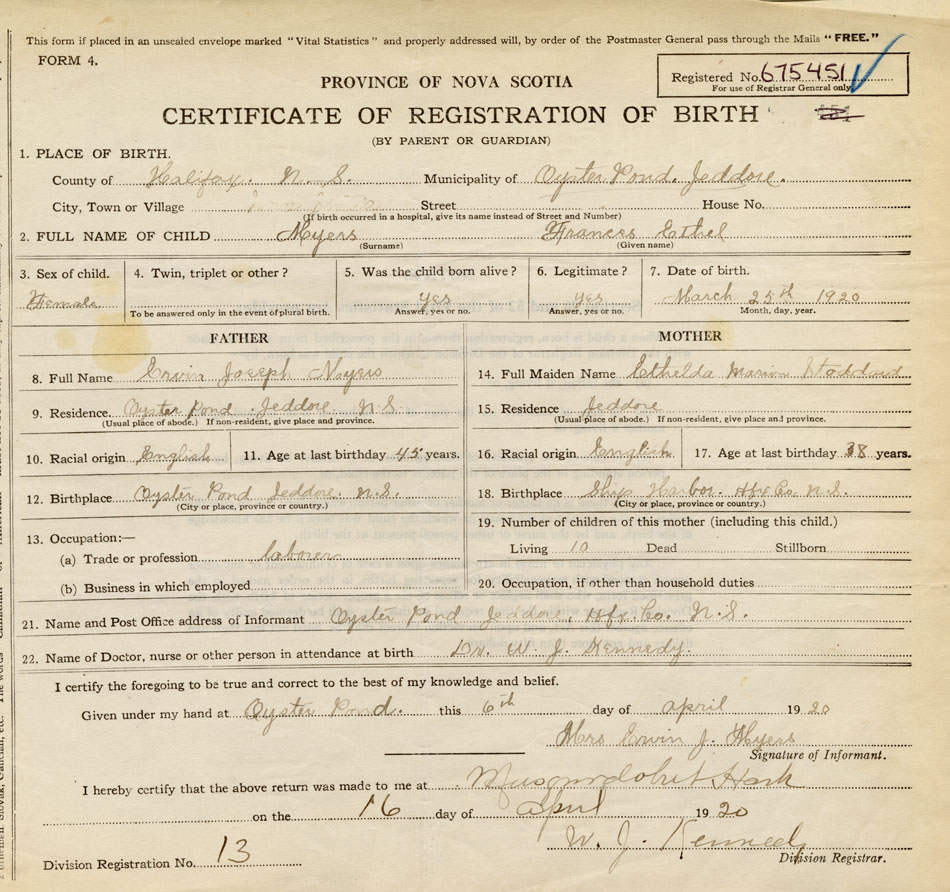 This form if placed in an unsealed envelope marked "Vital Statistics" and properly addressed will, by order of the Postmaster General pass through the Mails "FREE."
FORM 4.
Registered No. 675451
For use of Registrar General only
PROVINCE OF NOVA SCOTIA
CERTIFICATE OF REGISTRATION OF BIRTH
(BY PARENT OR GUARDIAN)
1. PLACE OF BIRTH.
County of Halifax. N. S. Municipality of Oyster Pond. Jeddore.
City, Town or Village Street House No.
(If birth occurred in a hospital, give its name instead of Street and Number)
2. FULL NAME OF CHILD Myers Frances Ethel
(Surname) (Given name)
3. Sex of child. 4. Twin, triplet or other? 5. Was the child born alive? 6. Legitimate? 7. Date of birth.
Female yes yes March 25th 1920
To be answered only in the event of plural birth. Answer, yes or no. Answer, yes or no. Month, day, year.
FATHER MOTHER
8. Full Name Ervin Joseph Myers
14. Full Maiden Name Ethelda Marion Stoddard
9. Residence. Oyster Pond Jeddore N S
(Usual place of abode.) If non-resident, give place and province.
15. Residence Jeddore
(Usual place of abode.) If non-resident, give place and province.
10. Racial origin English 11. Age at last birthday 45 years.
16. Racial origin English 17. Age at last birthday 38 years.
12. Birthplace Oyster Pond Jeddore. N.S.
(City or place, province or country.)
18. Birthplace Ship Harbor. Hfx Co. N.S.
(City or place, province or country.)
13. Occupation:—
(a) Trade or profession laborer
(b) Business in which employed
19. Number of children of this mother (including this child.)
Living 10 Dead Stillborn
20. Occupation, if other than household duties
21. Name and Post Office address of Informant Oyster Pond Jeddore, Hfx. Co. N.S.
22. Name of Doctor, nurse or other person in attendance at birth Dr. W. J. Kennedy.
I certify the foregoing to be true and correct to the best of my knowledge and belief.
Given under my hand at Oyster Pond. this 6th day of april 1920
Mrs Ervin J. Myers
Signature of Informant.
I hereby certify that the above return was made to me at Musquodoboit Harb
on the 16 day of april 1920
W. J. Kennedy
Division Registrar.
Division Registration No. 13